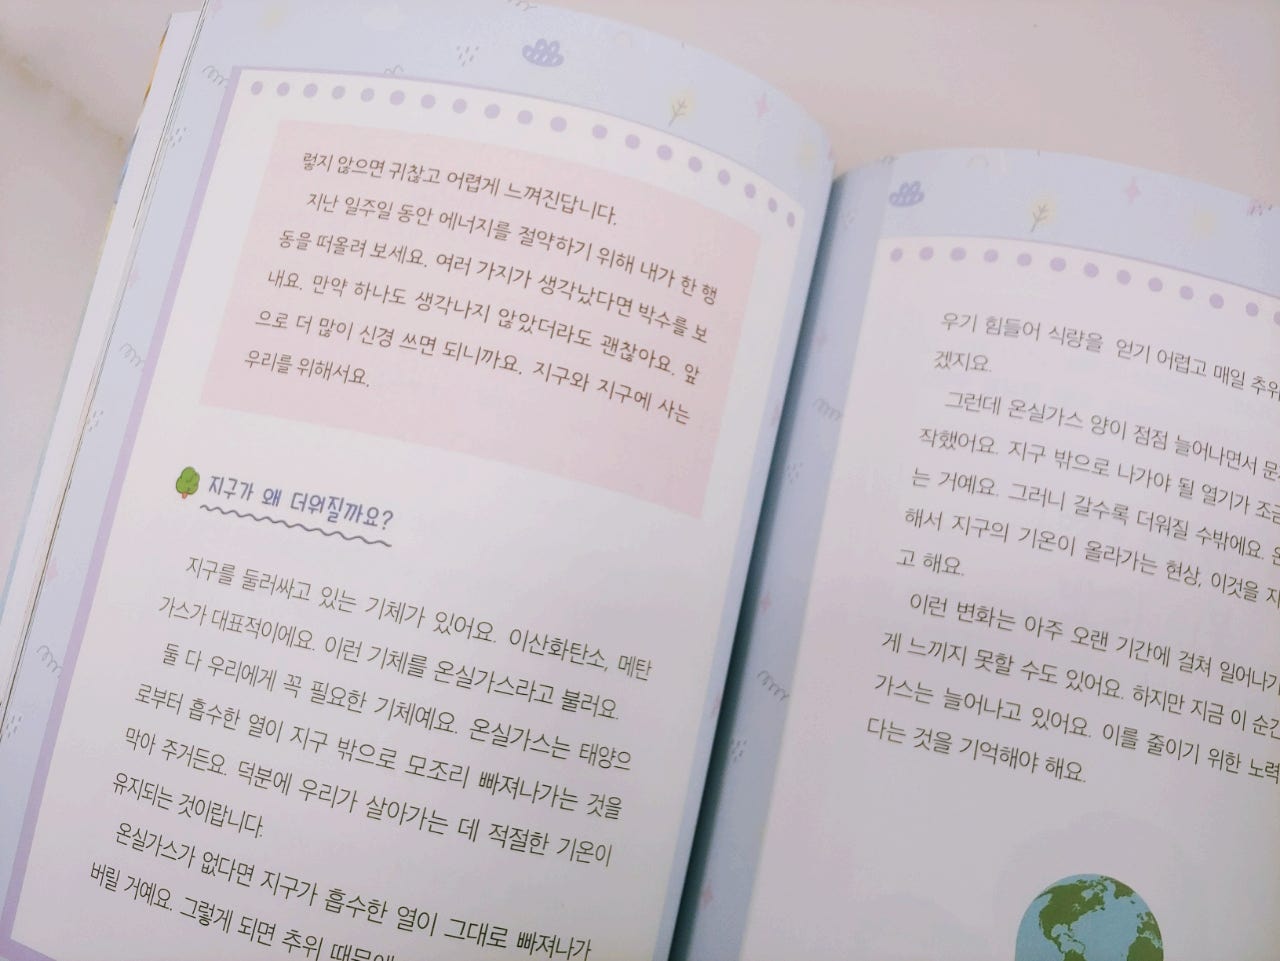 렇지 않으면 귀찮고 어렵게 느껴진답니다.
지난 일주일 동안 에너지를 절약하기 위해 내가 한 행
동을 떠올려 보세요. 여러 가지가 생각났다면 박수를 보
내요. 만약 하나도 생각나지 않았더라도 괜찮아요. 앞
으로 더 많이 신경 쓰면 되니까요. 지구와 지구에 사는
우리를 위해서요.
지구가 왜 더워질까요?
지구를 둘러싸고 있는 기체가 있어요. 이산화탄소, 메탄
가스가 대표적이에요. 이런 기체를 온실가스라고 불러요.
둘 다 우리에게 꼭 필요한 기체예요. 온실가스는 태양으
로부터 흡수한 열이 지구 밖으로 모조리 빠져나가는 것을
막아 주거든요. 덕분에 우리가 살아가는 데 적절한 기온이
유지되는 것이랍니다.
온실가스가 없다면 지구가 흡수한 열이 그대로 빠져나가
버릴 거예요. 그렇게 되면 추위 때문에
우기 힘들어 식량을 얻기 어렵고 매일 추위
겠지요.
그런데 온실가스 양이 점점 늘어나면서
작했어요. 지구 밖으로 나가야 될 열기가 조금
는 거예요. 그러니 갈수록 더워질 수밖에요.
해서 지구의 기온이 올라가는 현상, 이것을
고 해요.
이런 변화는 아주 오랜 기간에 걸쳐 일어나기
게 느끼지 못할 수도 있어요. 하지만 지금 이 순간
가스는 늘어나고 있어요. 이를 줄이기 위한 노력
다는 것을 기억해야 해요.